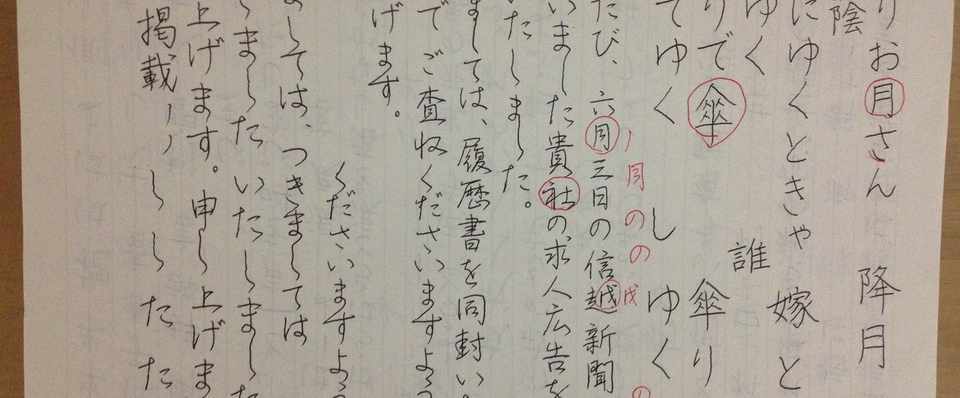 りお月さん 降月
陰
にゆくときゃ 嫁と
ゆく 誰
りで傘 傘り
てゆく しゆく
ノ月のの戌 の
たび、六月三日の信越新聞
いました貴社の求人広告を
たしました。
ましては、履歴書を同封い
でご査収くださいますよう
げます。
くださいますよう
ましては、つきましては
しましたいたしました
上げます。申し上げま
掲載ノノししたた